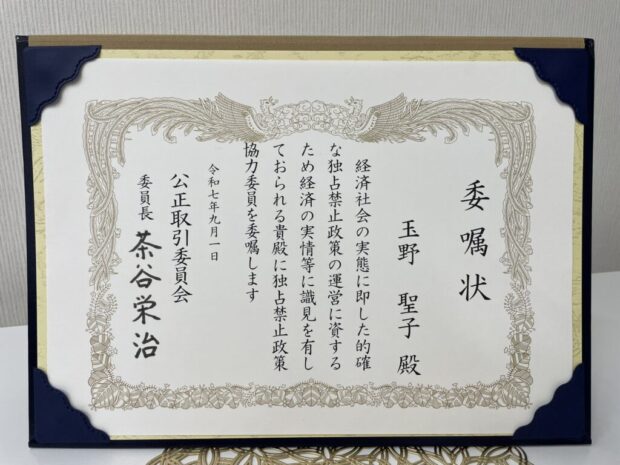 委嘱状
玉野 聖子 殿
経済社会の実態に即した的確
な独占禁止政策の運営に資する
ため経済の実情等に識見を有し
ておられる貴殿に独占禁止政策
協力委員を委嘱します
令和七年九月一日
公正取引委員会
委員長 茶谷栄治